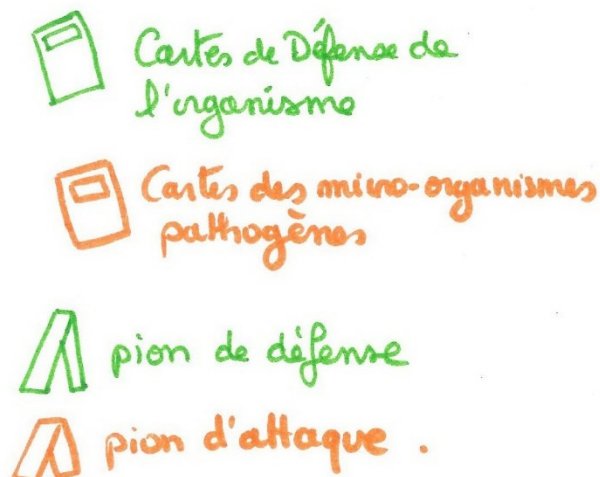 Cartes de Défense de
l'organisme
Cartes des micro-organismes
pathogènes
pion de défense
pion d'attaque .